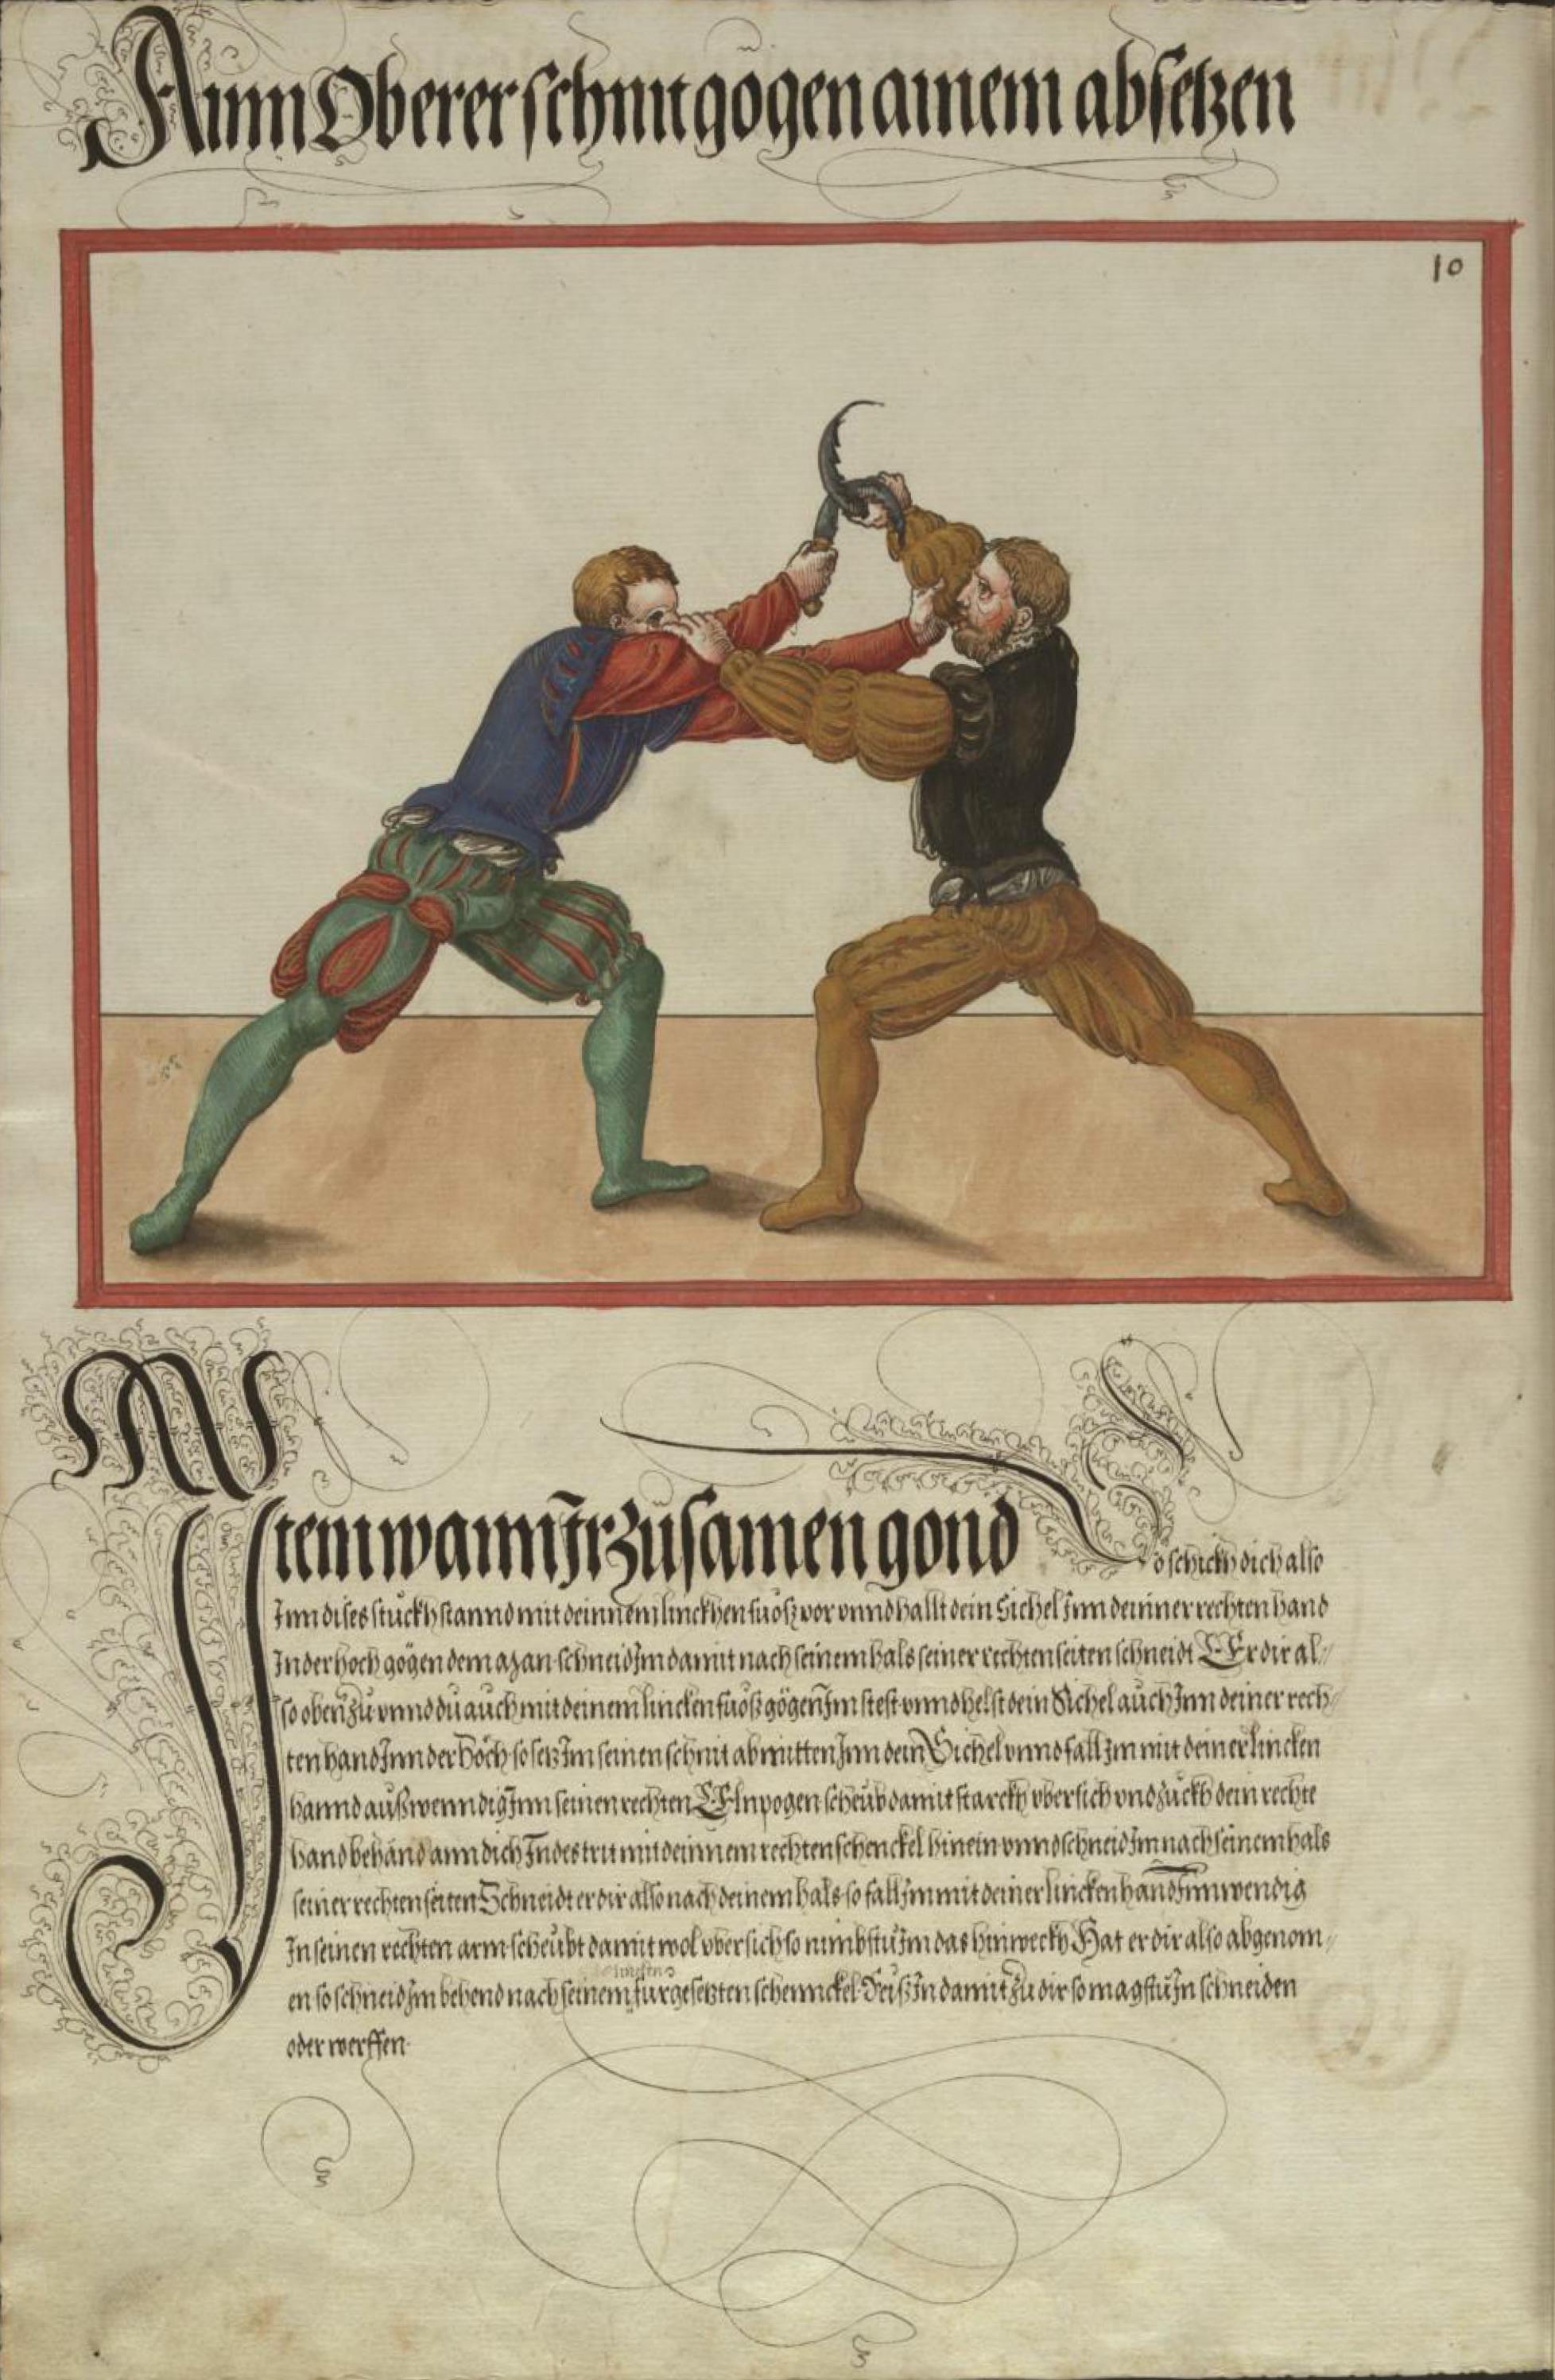 Ainn Oberer schnit gögen ainem absetzen
10
Item wann Ir zusamen gond So schickh dich also
Inn dises stuckh stannd mit deinnem linckhen fuosz vor vnnd hallt dein Sichel Inn deinner rechten hand
In der hoch gögen dem man schneid Im damit nach seinem hals seiner rechten seiten schneidt Er dir al-
so oben zu vnnd du auch mit deinem lincken fuosz gögen Im stest vnnd helst dein Sichel auch Inn deiner rech-
ten hand Inn der höch so setz Im seinen schnit ab mitten Inn dein Sichel vnnd fall Im mit deiner lincken
hannd außwenndig Inn seinen rechten Elnpogen scheub damit starckh vbersich vnd zuckh dein rechte
hand behánd ann dich Indes trit mit deinnem rechten schenckel hinein vnnd schneid Im nach seinem hals
seiner rechten seiten Schneidt er dir also nach deinem hals so fall Im mit deiner linckenhand Innwendig
In seinen rechten arm scheubt damit wol vbersich so nimbstu Im das hinweckh Hat er dir also abgenom-
lincken
en so schneid Im behend nach seinem furgesetzten schennckel Reiß In damit zu dir so magstu In schneiden
oder werffen.